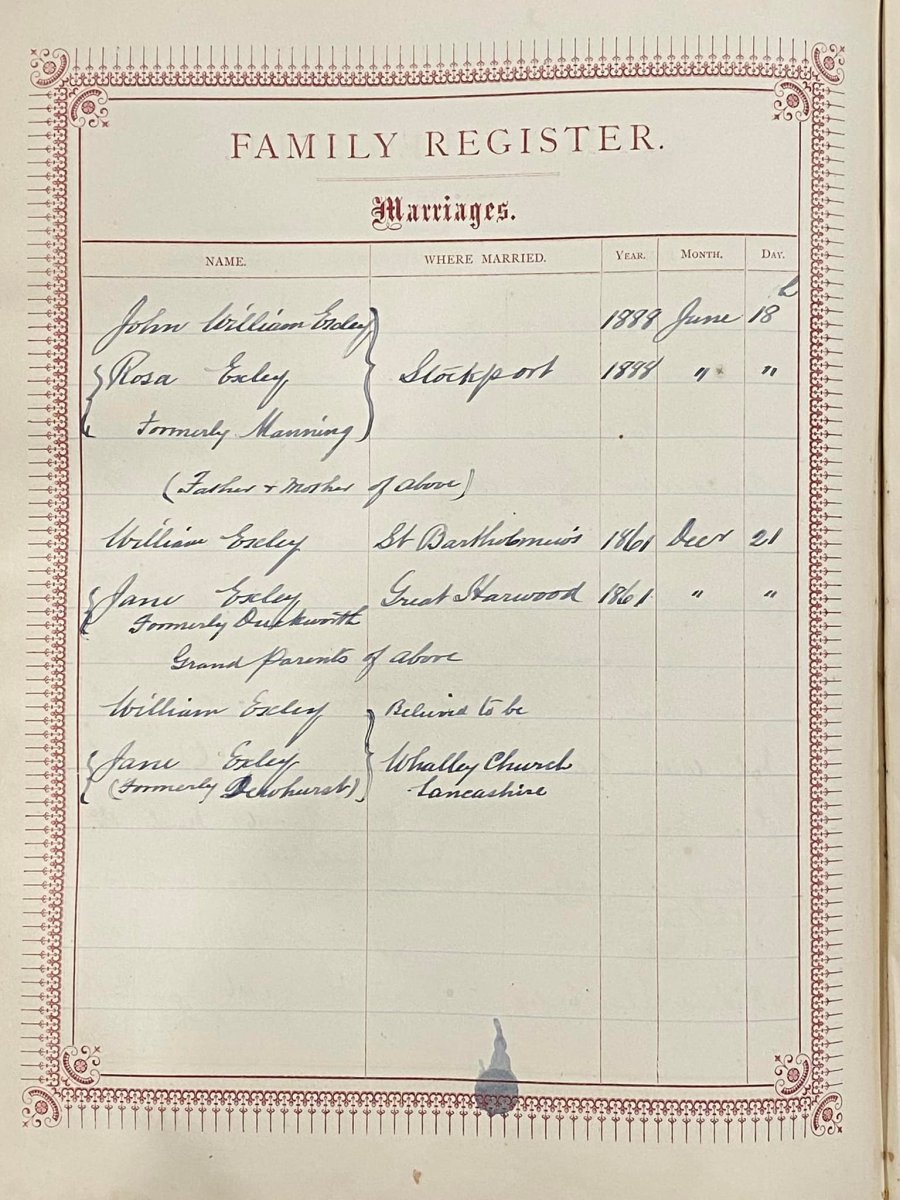 FAMILY REGISTER.
Marriages.
NAME. WHERE MARRIED. YEAR. MONTH. DAY.
John William Exley 1888 June 18th
Rosa Exley Stockport 1888 " "
Formerly Manning
(Father & Mother of above)
William Exley St Bartholomew's 1861 Decr 21
Jane Exley Great Harwood 1861 " "
Formerly Duckworth
Grand Parents of above
William Exley Believed to be
Jane Exley Whalley Church
(Formerly Dewhurst) Lancashire